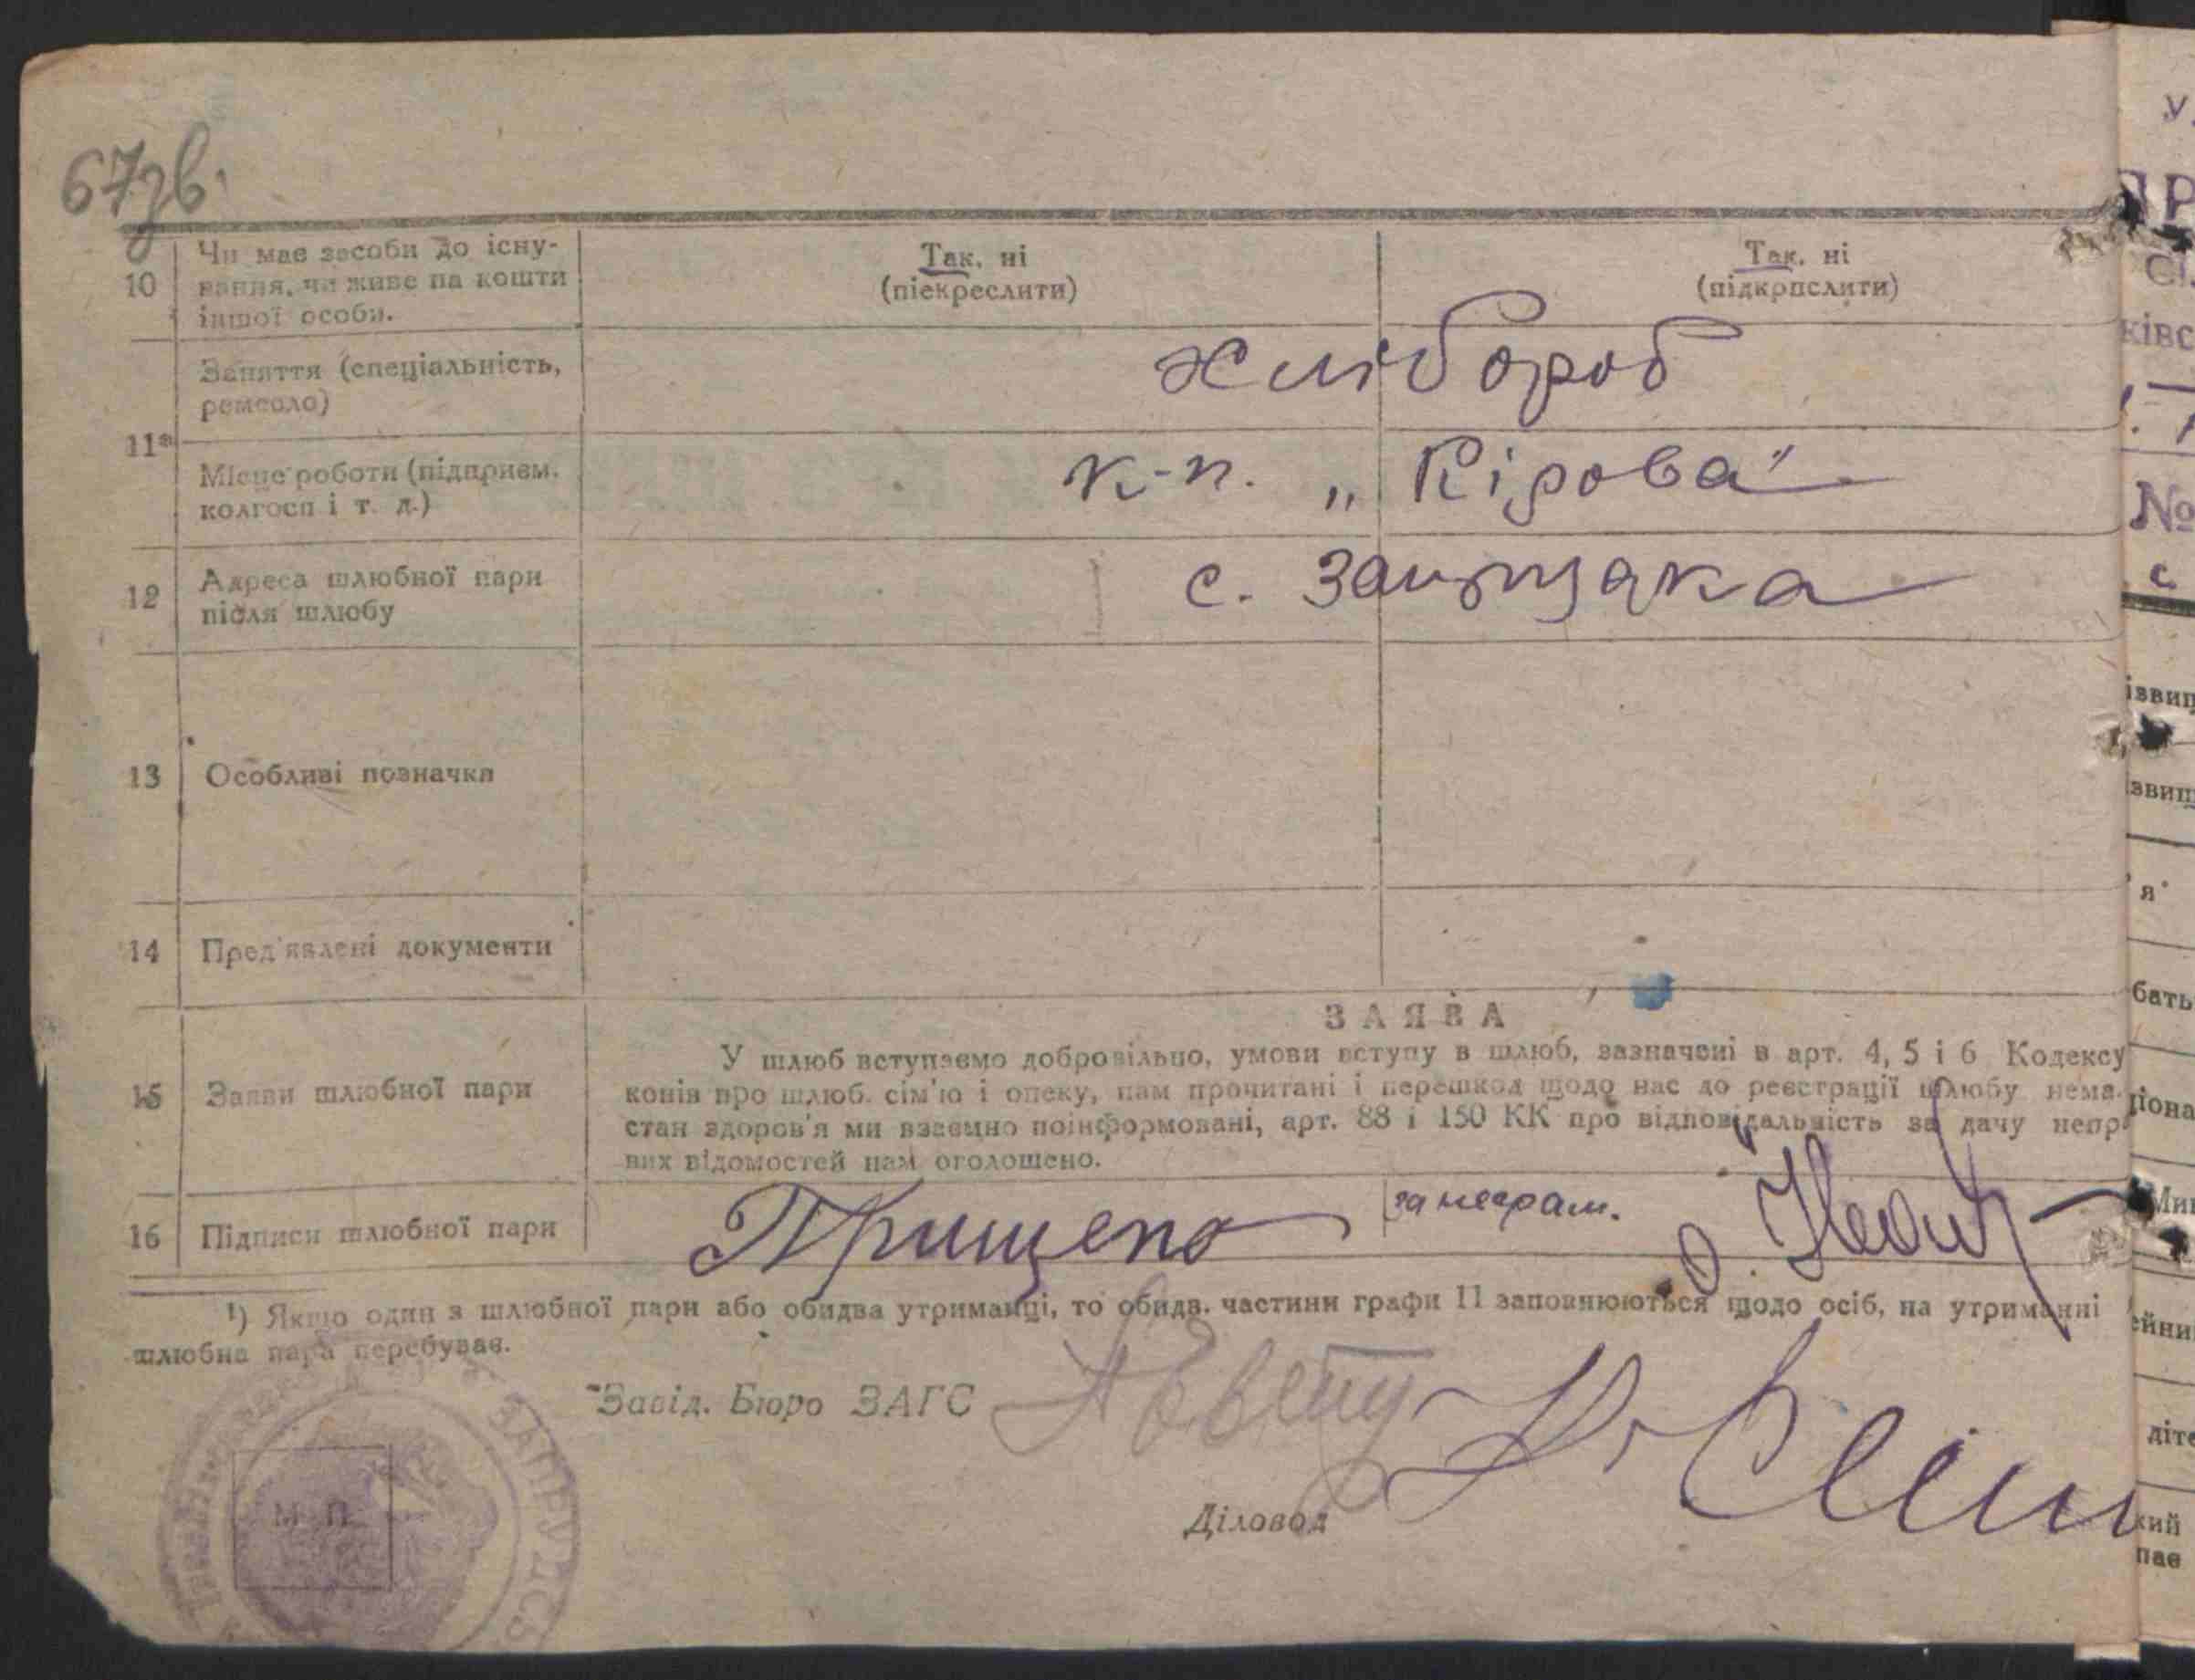 67зв.
10
Чи має засоби до існу-
вання, чи живе на кошти
іншої особи.
Так, ні
(піекреслити)
Так, ні
(підкрпслити)
11*
Заняття (спеціальність,
ремесло)
хлібороб
Місце роботи (підприєм.
колгосп і т. д.)
к-п. „Кірова"
12
Адреса шлюбної пари
після шлюбу
с.
13
Особливі позначки
14
Пред'явлені документи
ЗАЯВА
15
Заяви шлюбної пари
У шлюб вступаємо добровільно, умови вступу в шлюб, зазначені в арт. 4, 5 і 6 Кодексу
конів про шлюб. сім'ю і опеку, нам прочитані і перешкод щодо нас до реєстрації шлюбу нема
стан здоров'я ми взаємно поінформовані, арт. 88 і 150 КК про відповідальність за дачу непр
них відомостей нам оголошено.
16
Підписи шлюбної пари
Прищепо
за неграм.
¹) Якщо один з шлюбної пари або обидва утриманці, то обидв. частини графи 11 заповнюються щодо осіб, на утриманні
шлюбна пара перебуває.
Завід. Бюро ЗАГС
М. П.
Діловод
ЗАПРУДСЬ